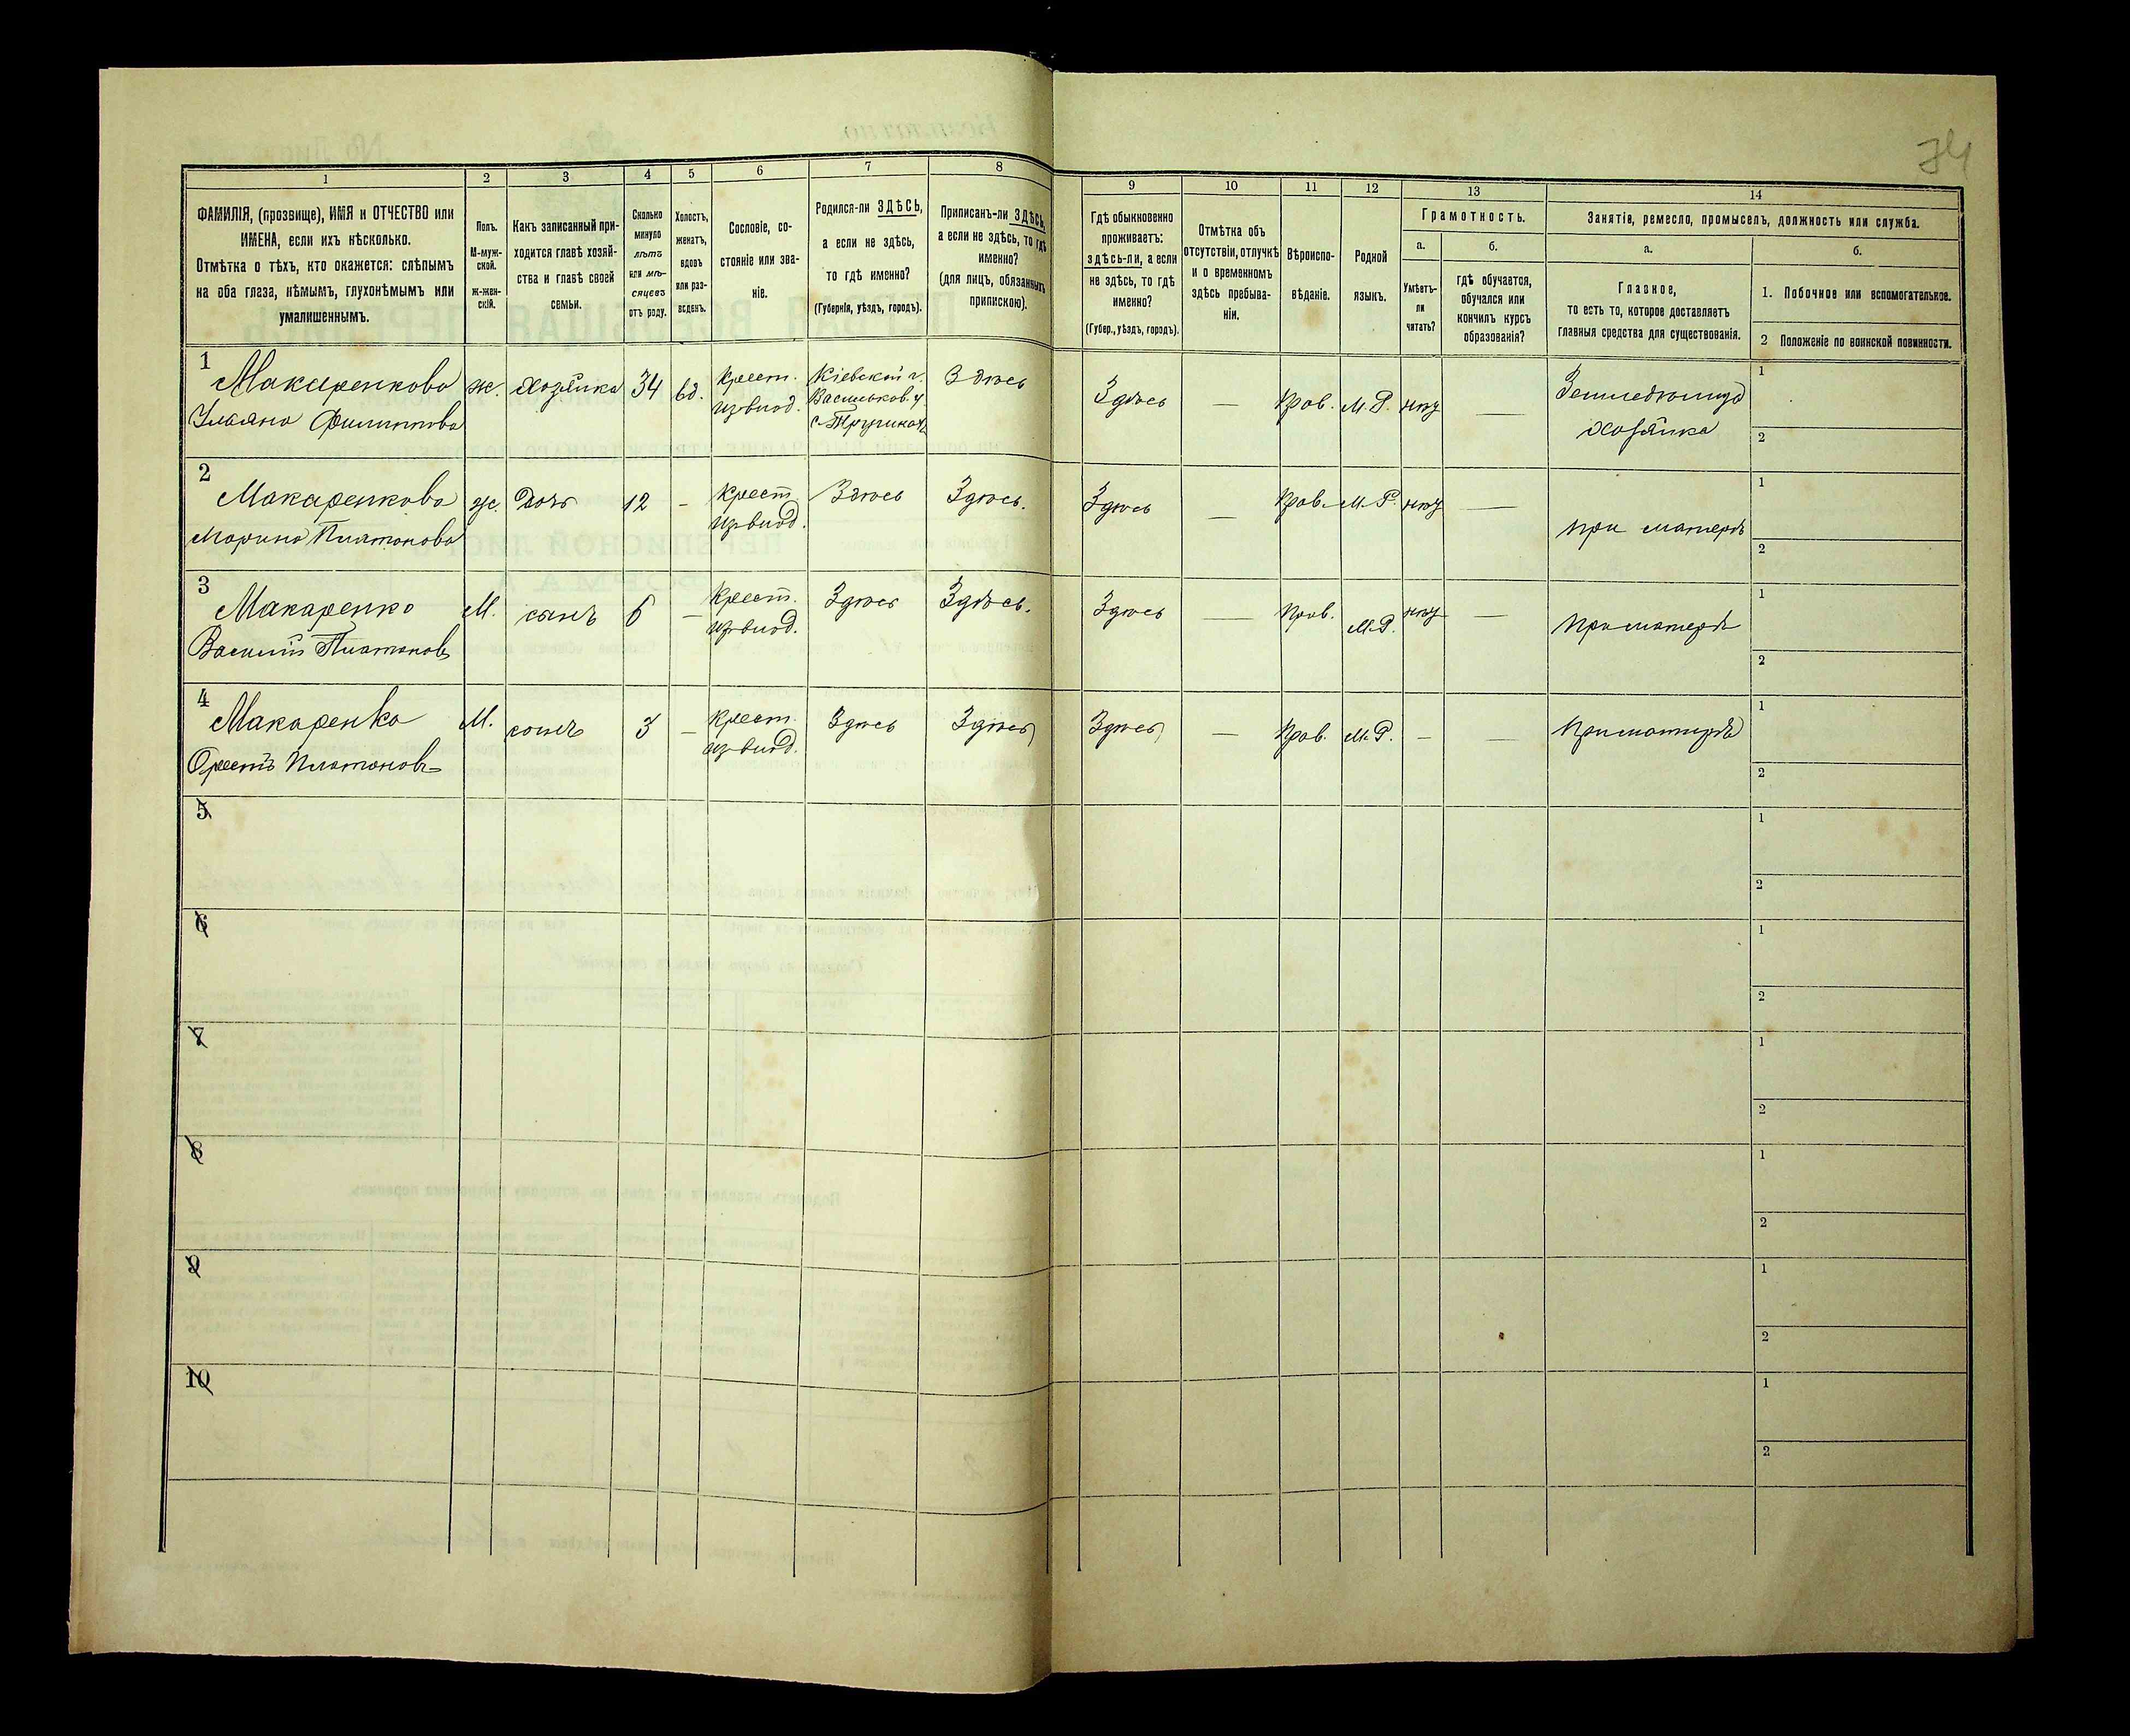 74
1
2
3
4
5
6
7
8
9
10
11
12
13
14
ФАМИЛІЯ, (прозвище), ИМЯ и ОТЧЕСТВО или
ИМЕНА, если ихъ нѣсколько.
Отмѣтка о тѣхъ, кто окажется: слѣпымъ
на оба глаза, нѣмымъ, глухонѣмымъ или
умалишеннымъ.
Полъ.
М-муж-
ской.
ж-жен-
скій.
Какъ записанный при-
ходится главѣ хозяй-
ства и главѣ своей
семьи.
Сколько
минуло
лѣтъ
или мѣ-
сяцевъ
отъ роду.
Холостъ,
женатъ,
вдовъ
или раз-
веденъ.
Сословіе, со-
стояніе или зва-
ніе.
Родился-ли ЗДѢСЬ,
а если не здѣсь,
то гдѣ именно?
(Губернія, уѣздъ, городъ).
Приписанъ-ли ЗДѢСЬ,
а если не здѣсь, то гдѣ
именно?
(для лицъ, обязанныхъ
припискою).
Гдѣ обыкновенно
проживаетъ:
здѣсь-ли, а если
не здѣсь, то гдѣ
именно?
(Губер., уѣздъ, городъ).
Отмѣтка объ
отсутствіи, отлучкѣ
и о временномъ
здѣсь пребыва-
ніи.
Вѣроиспо-
вѣданіе.
Родной
языкъ.
Грамотность.
а.
Умѣетъ-
ли
читать?
б.
гдѣ обучается,
обучался или
кончилъ курсъ
образованія?
Занятіе, ремесло, промыселъ, должность или служба.
а.
Главное,
то есть то, которое доставляетъ
главныя средства для существованія.
б.
1. Побочное или вспомогательное.
2 Положеніе по воинской повинности.
1
Макаренкова
Ульяна Филиппова
ж.
хозяйка
34
вд.
Крест.
из влад.
Кіевской г.
Васильков. у
Здѣсь
Здѣсь
—
Прав.
М. Р.
нѣт
—
хозяйка
1
2
2
Макаренкова
Марина Платонова
ж.
Дочь
12
-
Крест
из влад.
Здѣсь
Здѣсь.
Здѣсь
—
Прав.
М. Р.
нѣт
—
при матери
1
2
3
Макаренко
Василій Платоновъ
М.
сынъ
6
—
Крест.
из влад.
Здѣсь
Здѣсь.
Здѣсь
—
Прав.
М. Р.
нѣт
—
при матери
1
2
4
Макаренко
Орестъ Платоновъ
М.
сынъ
3
—
Крест.
из влад.
Здѣсь
Здѣсь
Здѣсь
—
Прав.
М. Р.
-
—
При матери
1
2
5
1
2
6
1
2
7
1
2
8
1
2
9
1
2
10
1
2